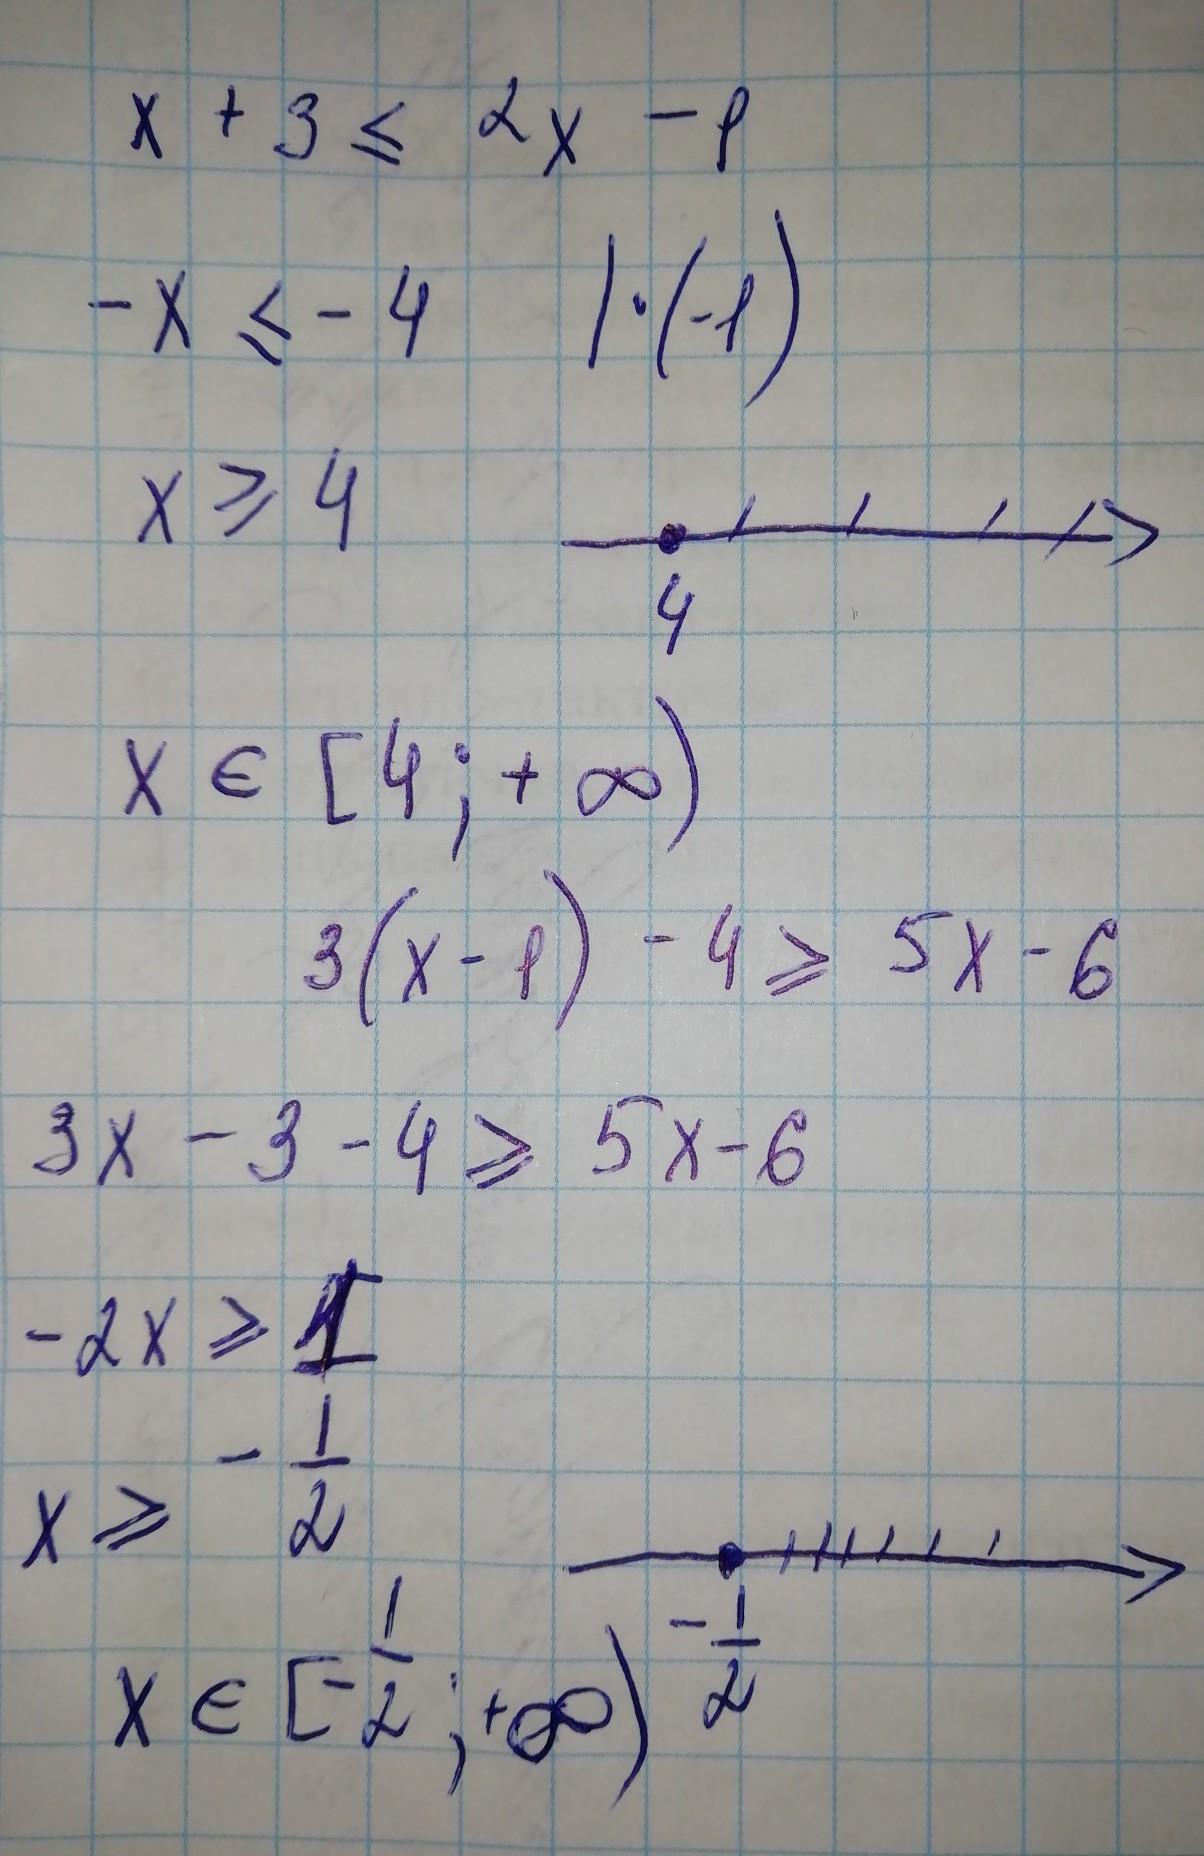 x + 3 ≤ 2x - 1
-x ≤ -4 | · (-1)
x ≥ 4
4
x ∈ [4; +∞)
3(x-1) - 4 ≥ 5x - 6
3x - 3 - 4 ≥ 5x - 6
-2x ≥ 1
x ≥ -1/2
-1/2
x ∈ [-1/2; +∞)